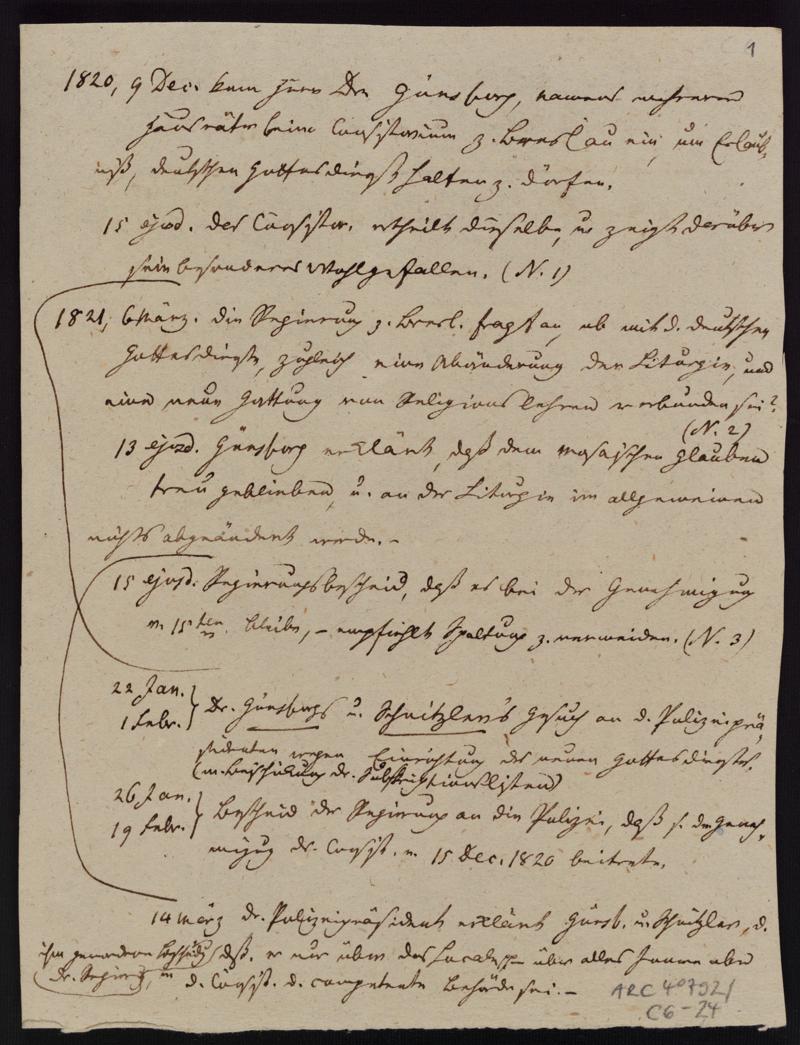 1
1820, 9 Dec. kam Herr Dr. Günsburg, namens mehrerer
Hausväter beim Consistorium z. Breslau ein, um Erlaub-
niß, deutschen Gottesdienst halten z. dürfen.
15 ejusd. das Consistor. ertheilt dieselbe, u. zeigt darüber
sein besonderes Wohlgefallen. (N. 1)
1821, 6 März. die Regierung z. Bresl. fragt an, ob mit d. deutschen
Gottesdienste, zugleich eine Abänderung der Liturgie, und
eine neue Gattung von Religionslehren verbunden sei?
(N. 2)
13 ejusd. Günsburg erklärt, daß dem mosaischen Glauben
treu geblieben, u. an der Liturgie im allgemeinen
nichts abgeändert werde. –
15 ejusd. Regierungsbescheid, daß es bei der Genehmigung
v. 15ten bleibe, – empfiehlt Spaltung z. vermeiden. (N. 3)
22 Jan.
1 Febr. Dr. Günsburgs u. Schnitzler's Gesuch an d. Polizeiprä-
sidenten wegen Einrichtung des neuen Gottesdienstes.
(m. Beischickung der Subskriptionslisten)
26 Jan.
19 Febr. Bescheid der Regierung an die Polizei, daß s. der Geneh-
migug des Consist. v. 15 Dec. 1820 beitrete.
14 März der Polizeipräsident erklärt Günsb. u. Schnitzler, d.
ihm gewordenen Bescheid daß er nur über das Locale, über alles Innere aber
der Regierg, d. Consist. d. competente Behörde sei. –
ARC 4° 792/
C6-24